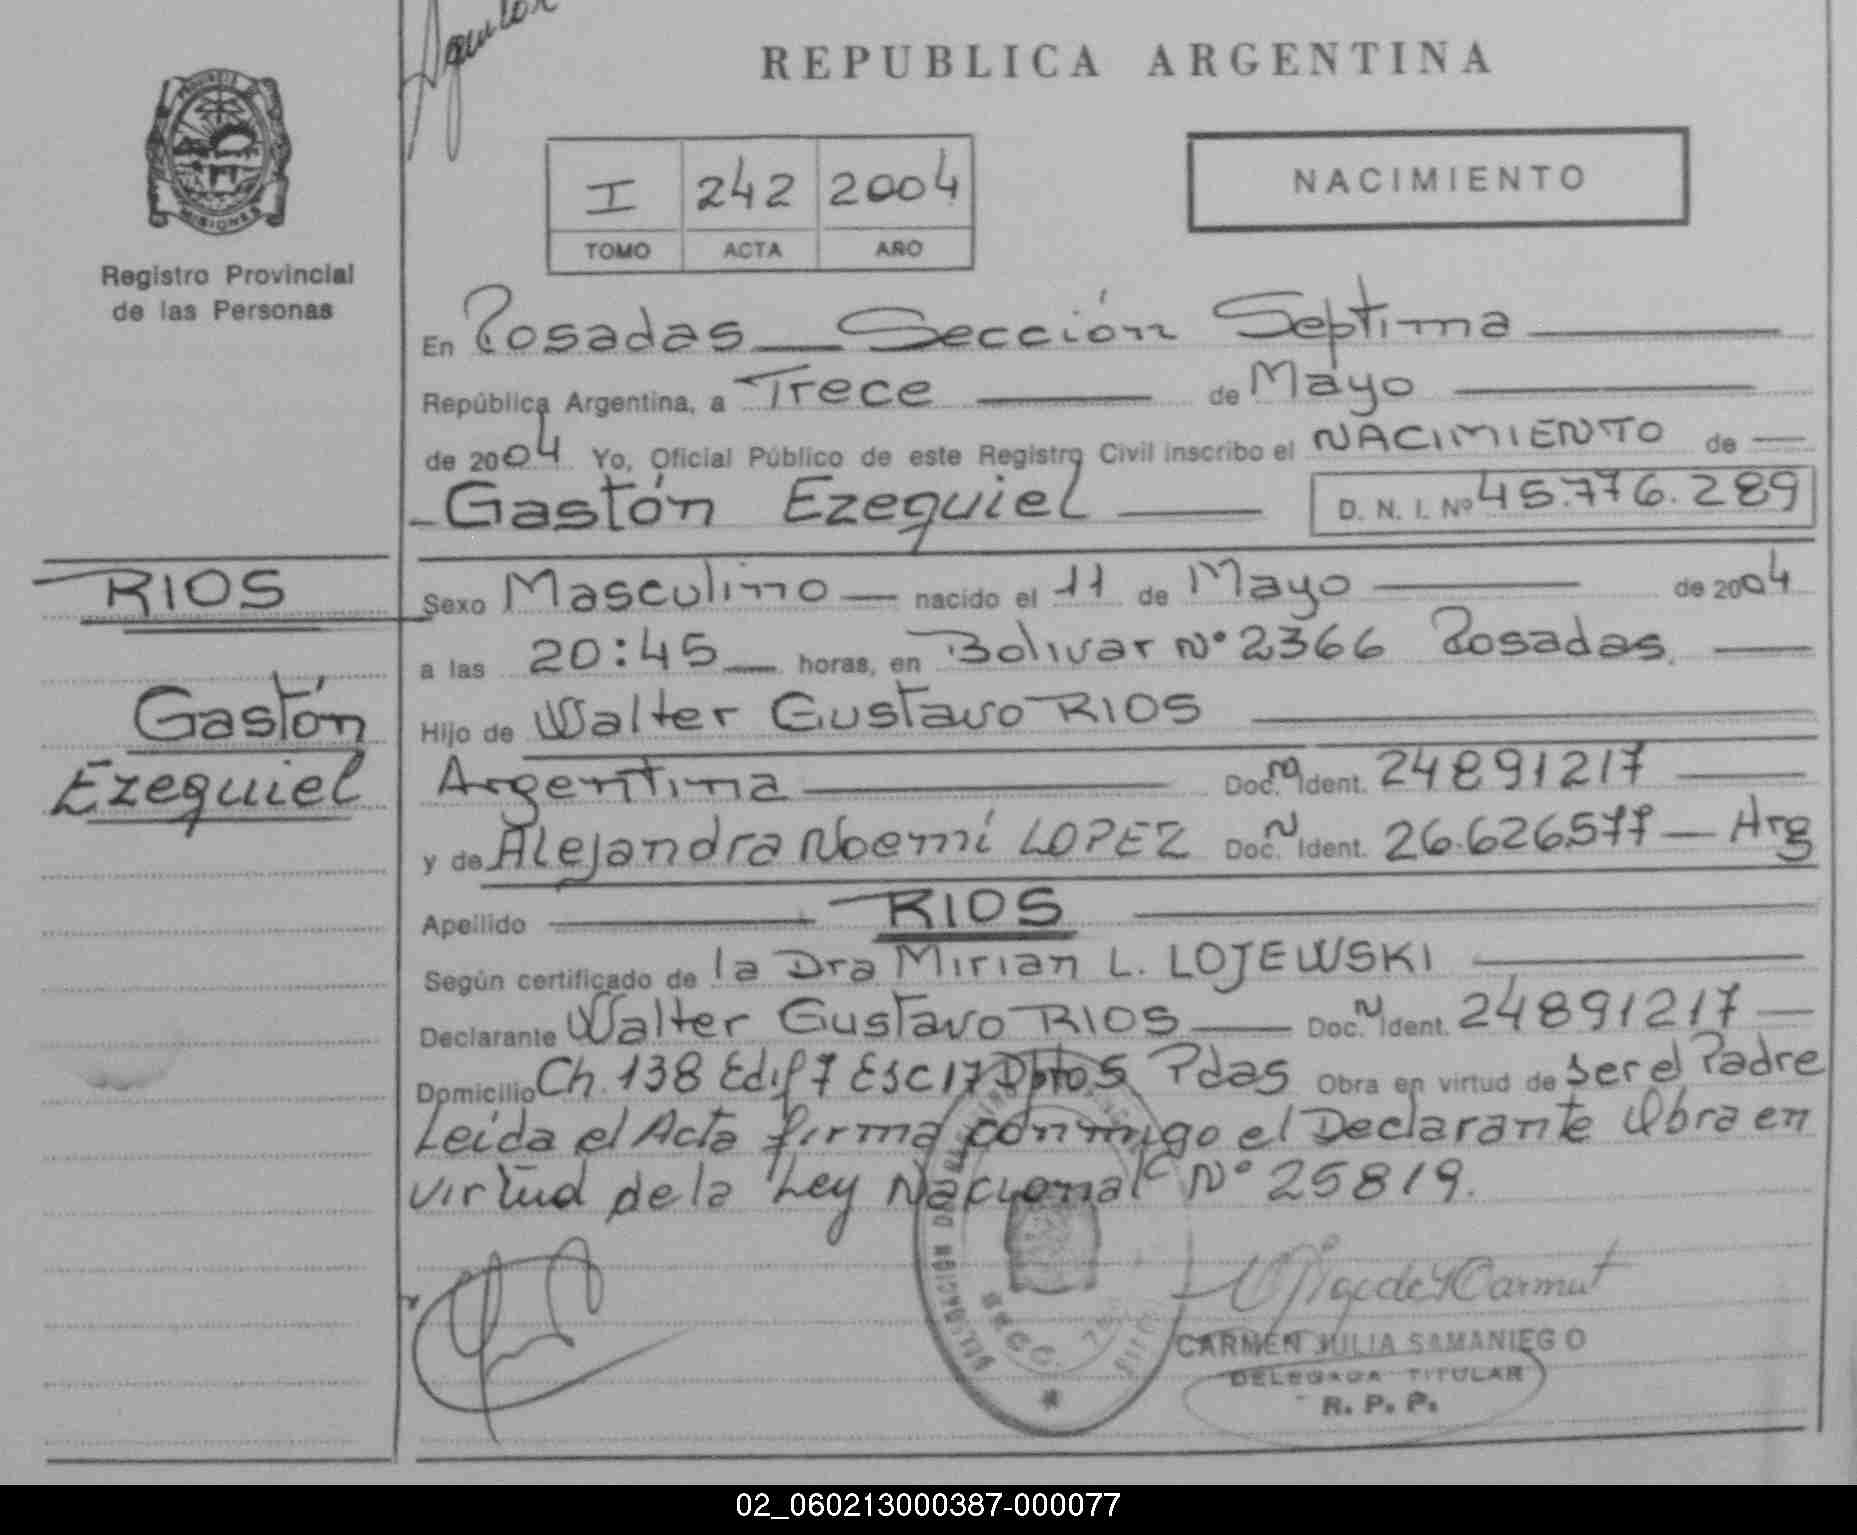 REPUBLICA ARGENTINA
PROVINCIA DE MISIONES
Registro Provincial
de las Personas
I 242 2004
TOMO ACTA AÑO
NACIMIENTO
En Posadas Sección Septima
República Argentina, a Trece de Mayo
de 2004 Yo, Oficial Público de este Registro Civil inscribo el NACIMIENTO de
Gastón Ezequiel D. N. I. Nº 45.776.289
RIOS
Gastón
Ezequiel
Sexo Masculino nacido el 11 de Mayo de 2004
a las 20:45 horas, en Bolivar Nº 2366 Posadas.
Hijo de Walter Gustavo RIOS
Argentina Doc. Ident. 24891217
y de Alejandra Noemí LOPEZ Doc. N Ident. 26.626.577 Arg
Apellido RIOS
Según certificado de la Dra Mirian L. LOJEWSKI
Declarante Walter Gustavo RIOS Doc. N Ident. 24891217
Domicilio Ch. 138 Edif 7 Esc 17 Dpto 5 Pdas Obra en virtud de ser el Padre
Leida el Acta firma conmigo el Declarante Obra en
virtud de la Ley Nacional Nº 25819.
CARMEN JULIA SAMANIEGO
DELEGADA TITULAR
R. P. P.
02_060213000387-000077